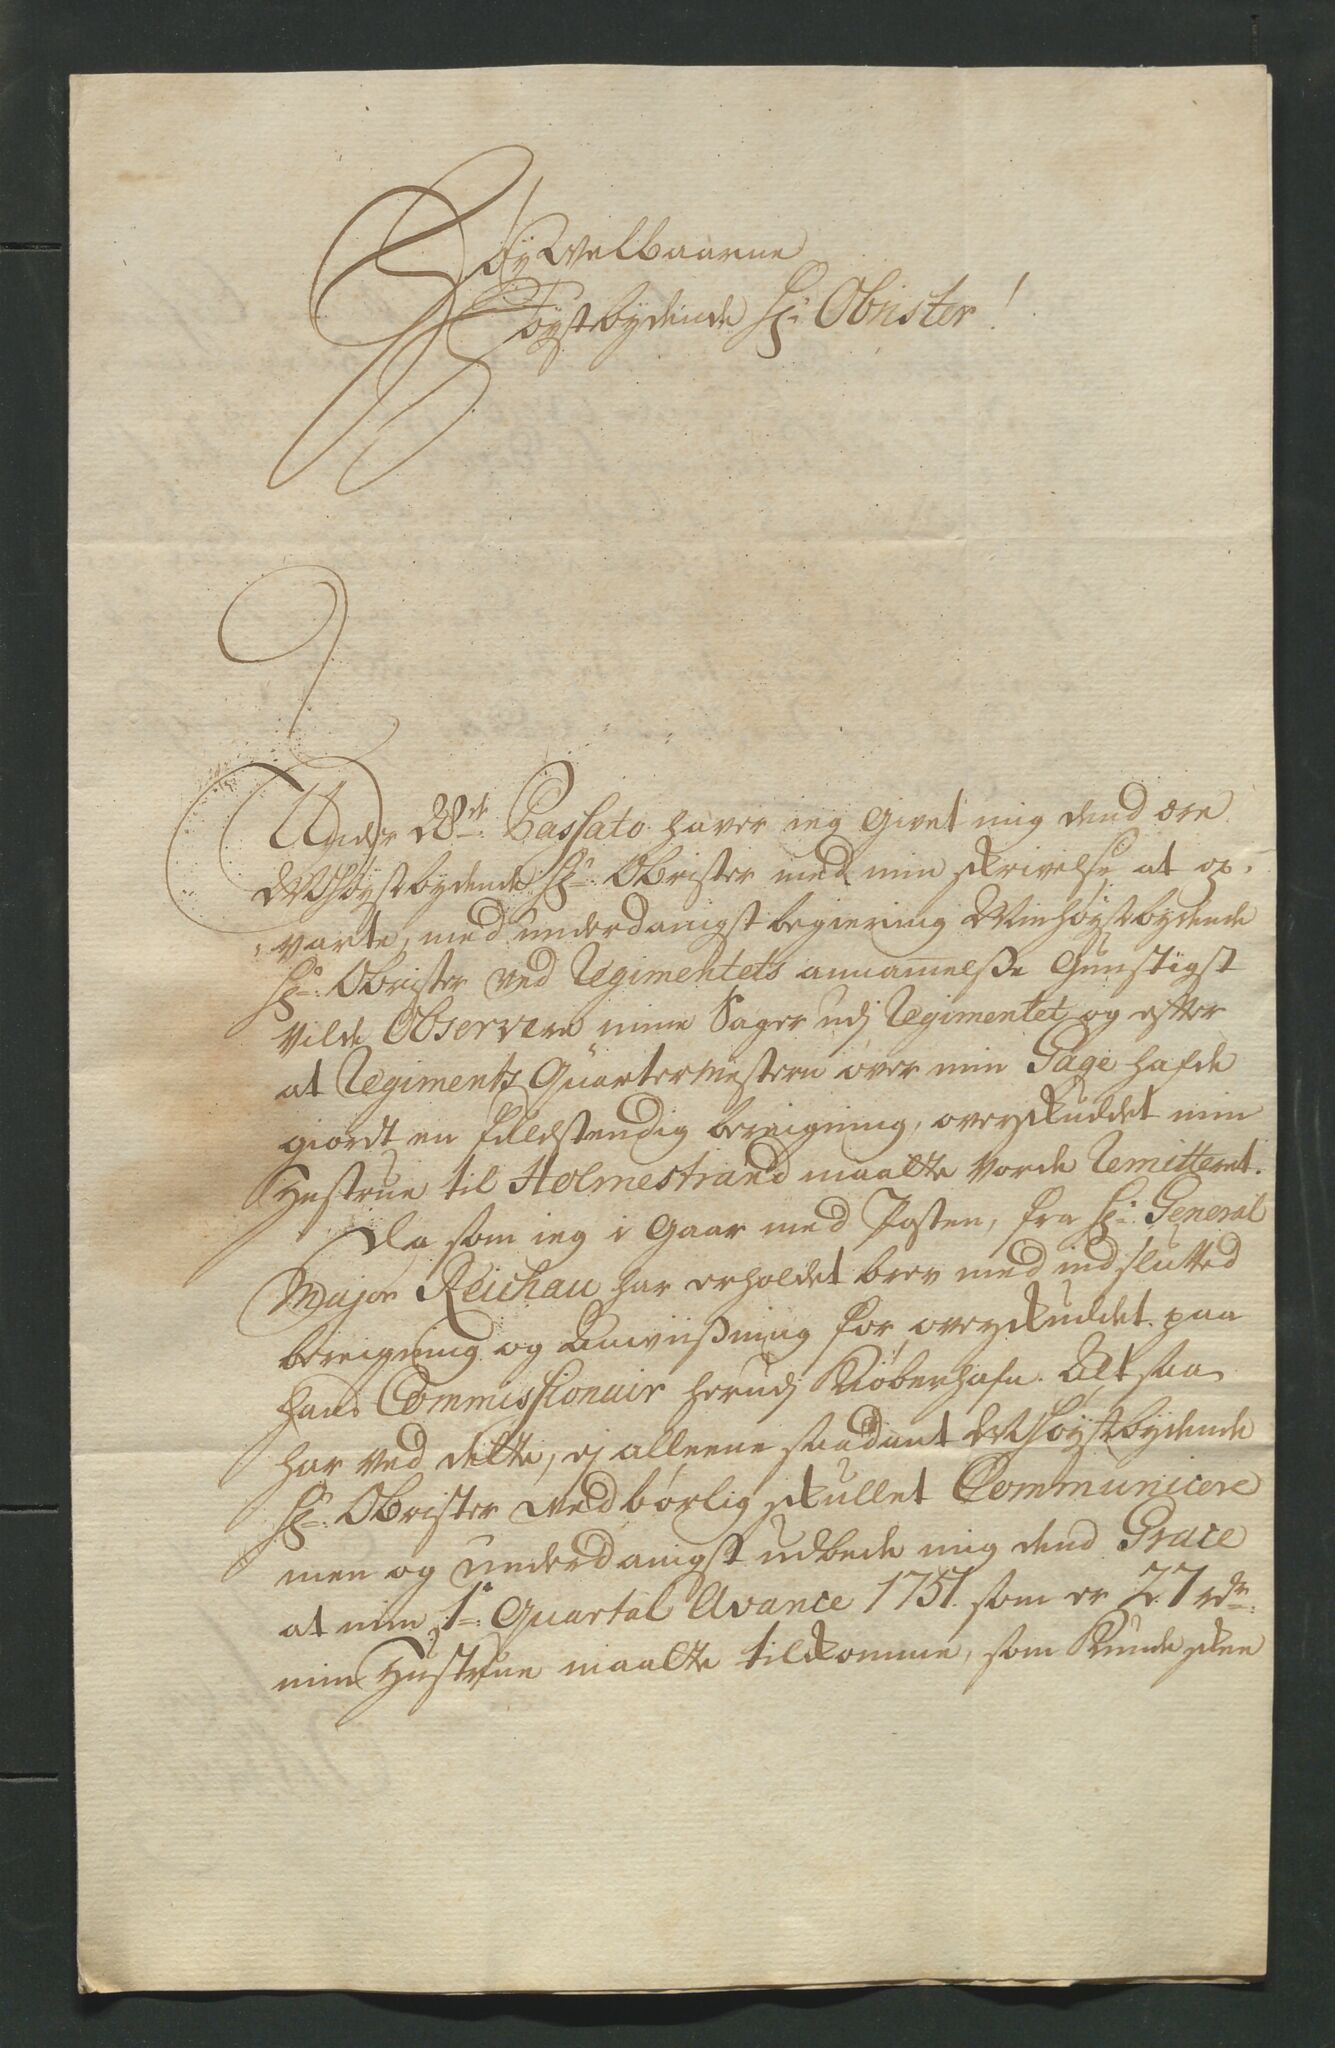 HøyWelbaarne
Høystbydende Hr: Obrister!
Under 28de: Passato haver ieg Givet mig dend ære
Høystbydende Hr: Obrister med min skrivelse at op-
varte, med underdanigst begiering Høystbydende
Hr: Obrister ved Regimentets annammelsße Gunstigst
vilde Observere mine Sager udj Regimentet og efter
at Regiments Quartermestern over min Gage hafde
giordt en fuldstendig bereigning, overskuddet min
Hustrue til Holmestrand maatte vorde Remitteret.
Da som ieg i Gaar med Posten, fra Hr: General
Major Reichau har erholdet brev med indslutted
bereigning og Anviißning for overskuddet paa
hans Commissionair herudj Kiøbenhafn. Alt saa
har ved dette, ej alleene saadant Høystbydende
Hr: Obrister vedbørlig skullet Communicere
men og underdanigst udbede mig dend Grace
at min 1te: Quartal Avance 1751. som er 27 rdr:
min Hustrue maatte tilkomme, som kunde skee